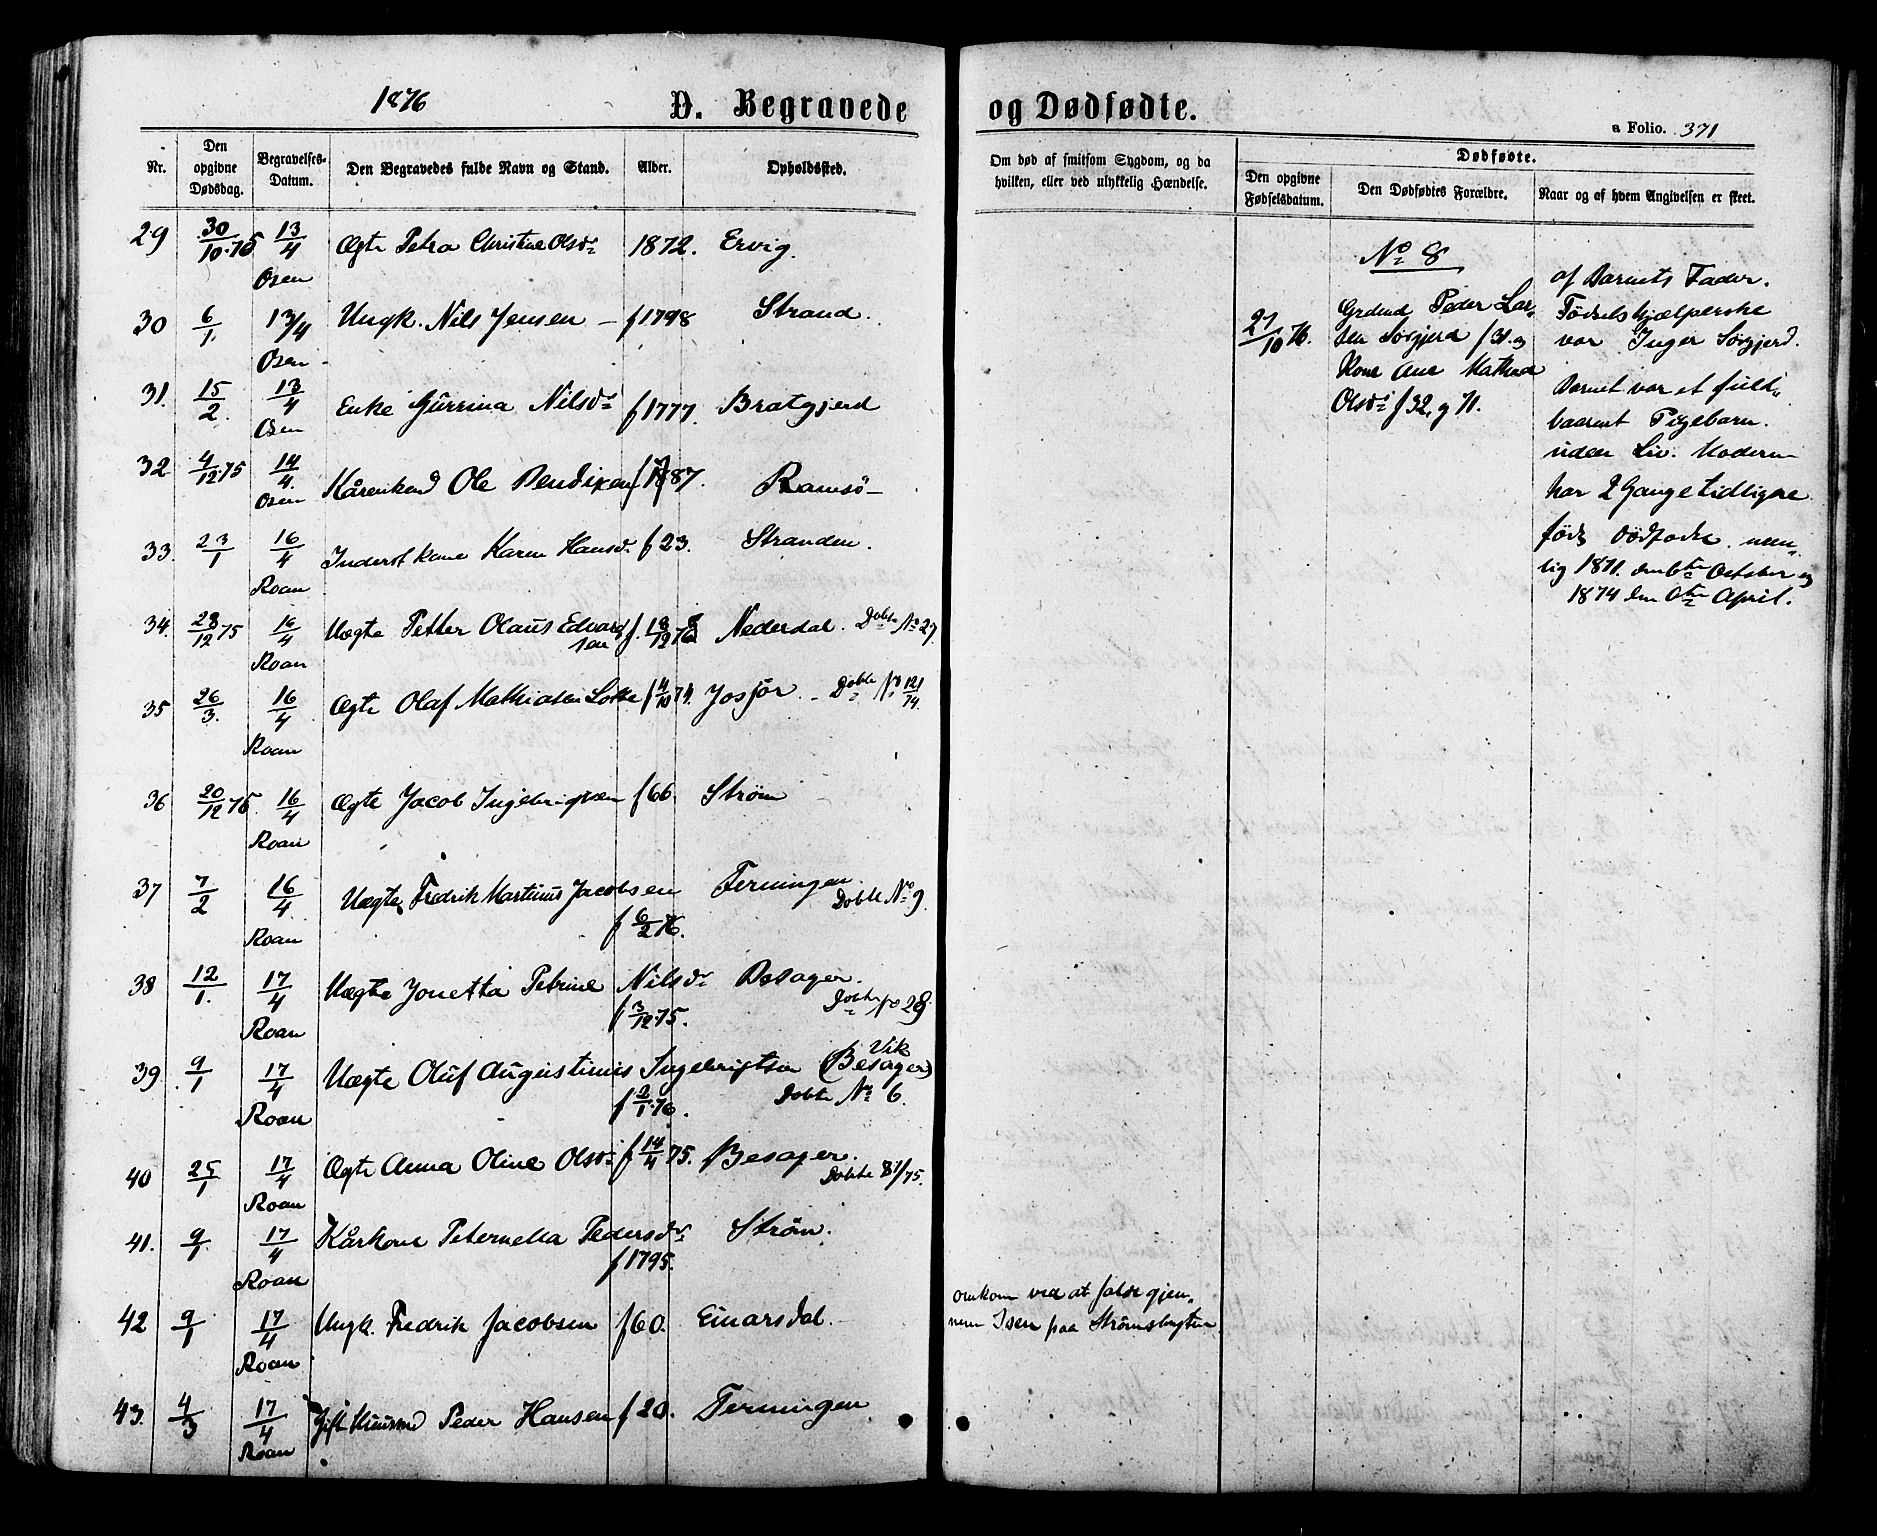 1876
D. Begravede og Dødfødte.
a Folio. 371
Nr. Den opgivne Dødsdag. Begravelses-Datum. Den Begravedes fulde Navn og Stand. Alder. Opholdssted.
Om død af smitsom Sygdom, og da hvilken, eller ved ulykkelig Hændelse.
Dødfødte.
Den opgivne Fødselsdatum. Den Dødfødtes Forældre. Naar og af hvem Angivelsen er skeet.
29 30/10.75 13/4 Osen Ægte Petra Christine Olsdr 1872. Ervig.
30 6/1. 13/4 Osen Ungk. Nils Jensen - f 1798 Strand.
31. 15/2. 13/4 Osen Enke Gurrina Nilsdr f 1777. Bratgjerd
32 4/12.75 14/4. Osen Kårenkmd Ole Bendixen f 87. Ramsø
33. 23/1 16/4 Roan Inderst kone Karen Hansdr. f 23. Stranden.
34. 28/12 75 16/4 Roan Uægte Petter Olaus Edvardsen f. 18/12 Nederdal. Dobte No 27
35 26/3. 16/4 Roan Ægte Olaf Mathiasen f 4/10 74. Josfør. - Dobte No 121/74.
36 20/12 75. 16/4 Roan Ægte Jacob Ingebrigtsen f 66. Strøm
37 7/2 16/4 Roan Uægte Fredrik Martinus Jacobsen f 6/2 76. Terningen. Dobte No 9.
38 12/1. 17/4 Roan Uægte Jonetta Petrine Nilsdr f 3/12.75. Besager. Dobte No 28.
39 9/1 17/4 Roan Uægte Oluf Augustinus Ingebrigtsen f 2/1.76. Vik (Besager) Dobte No 6.
40 25/1 17/4 Roan Ægte Anna Oline Olsdr f 14/4 75. Besager. Dobte 87/75.
41. 9/1. 17/4 Roan Kårkone Peternella Pedersdr f 1795. Strøm.
42 9/1 17/4 Roan Ungk. Fredrik Jacobsen f 60. Einarsdal. omkom ved at falde gjennem Isen paa Strømsbugten.
43. 4/3 17/4 Roan Gift Peder Hansen f 20. Terningen.
No 8
21/10 76.
Grdmd Peder Larsen Sørgjerd f 31. og
Kone Ane Mathea
Olsdr f 32, g 71.
af Barnets Fader.
Fødselshjælperske
var Inger Sørgjerd.
Barnet var et fuldbaarent Pigebarn.
uden Liv. Moderen
har 2 Gange tidligere
født dødfødte. nemlig 1871. den 6te October og
1874 den April.